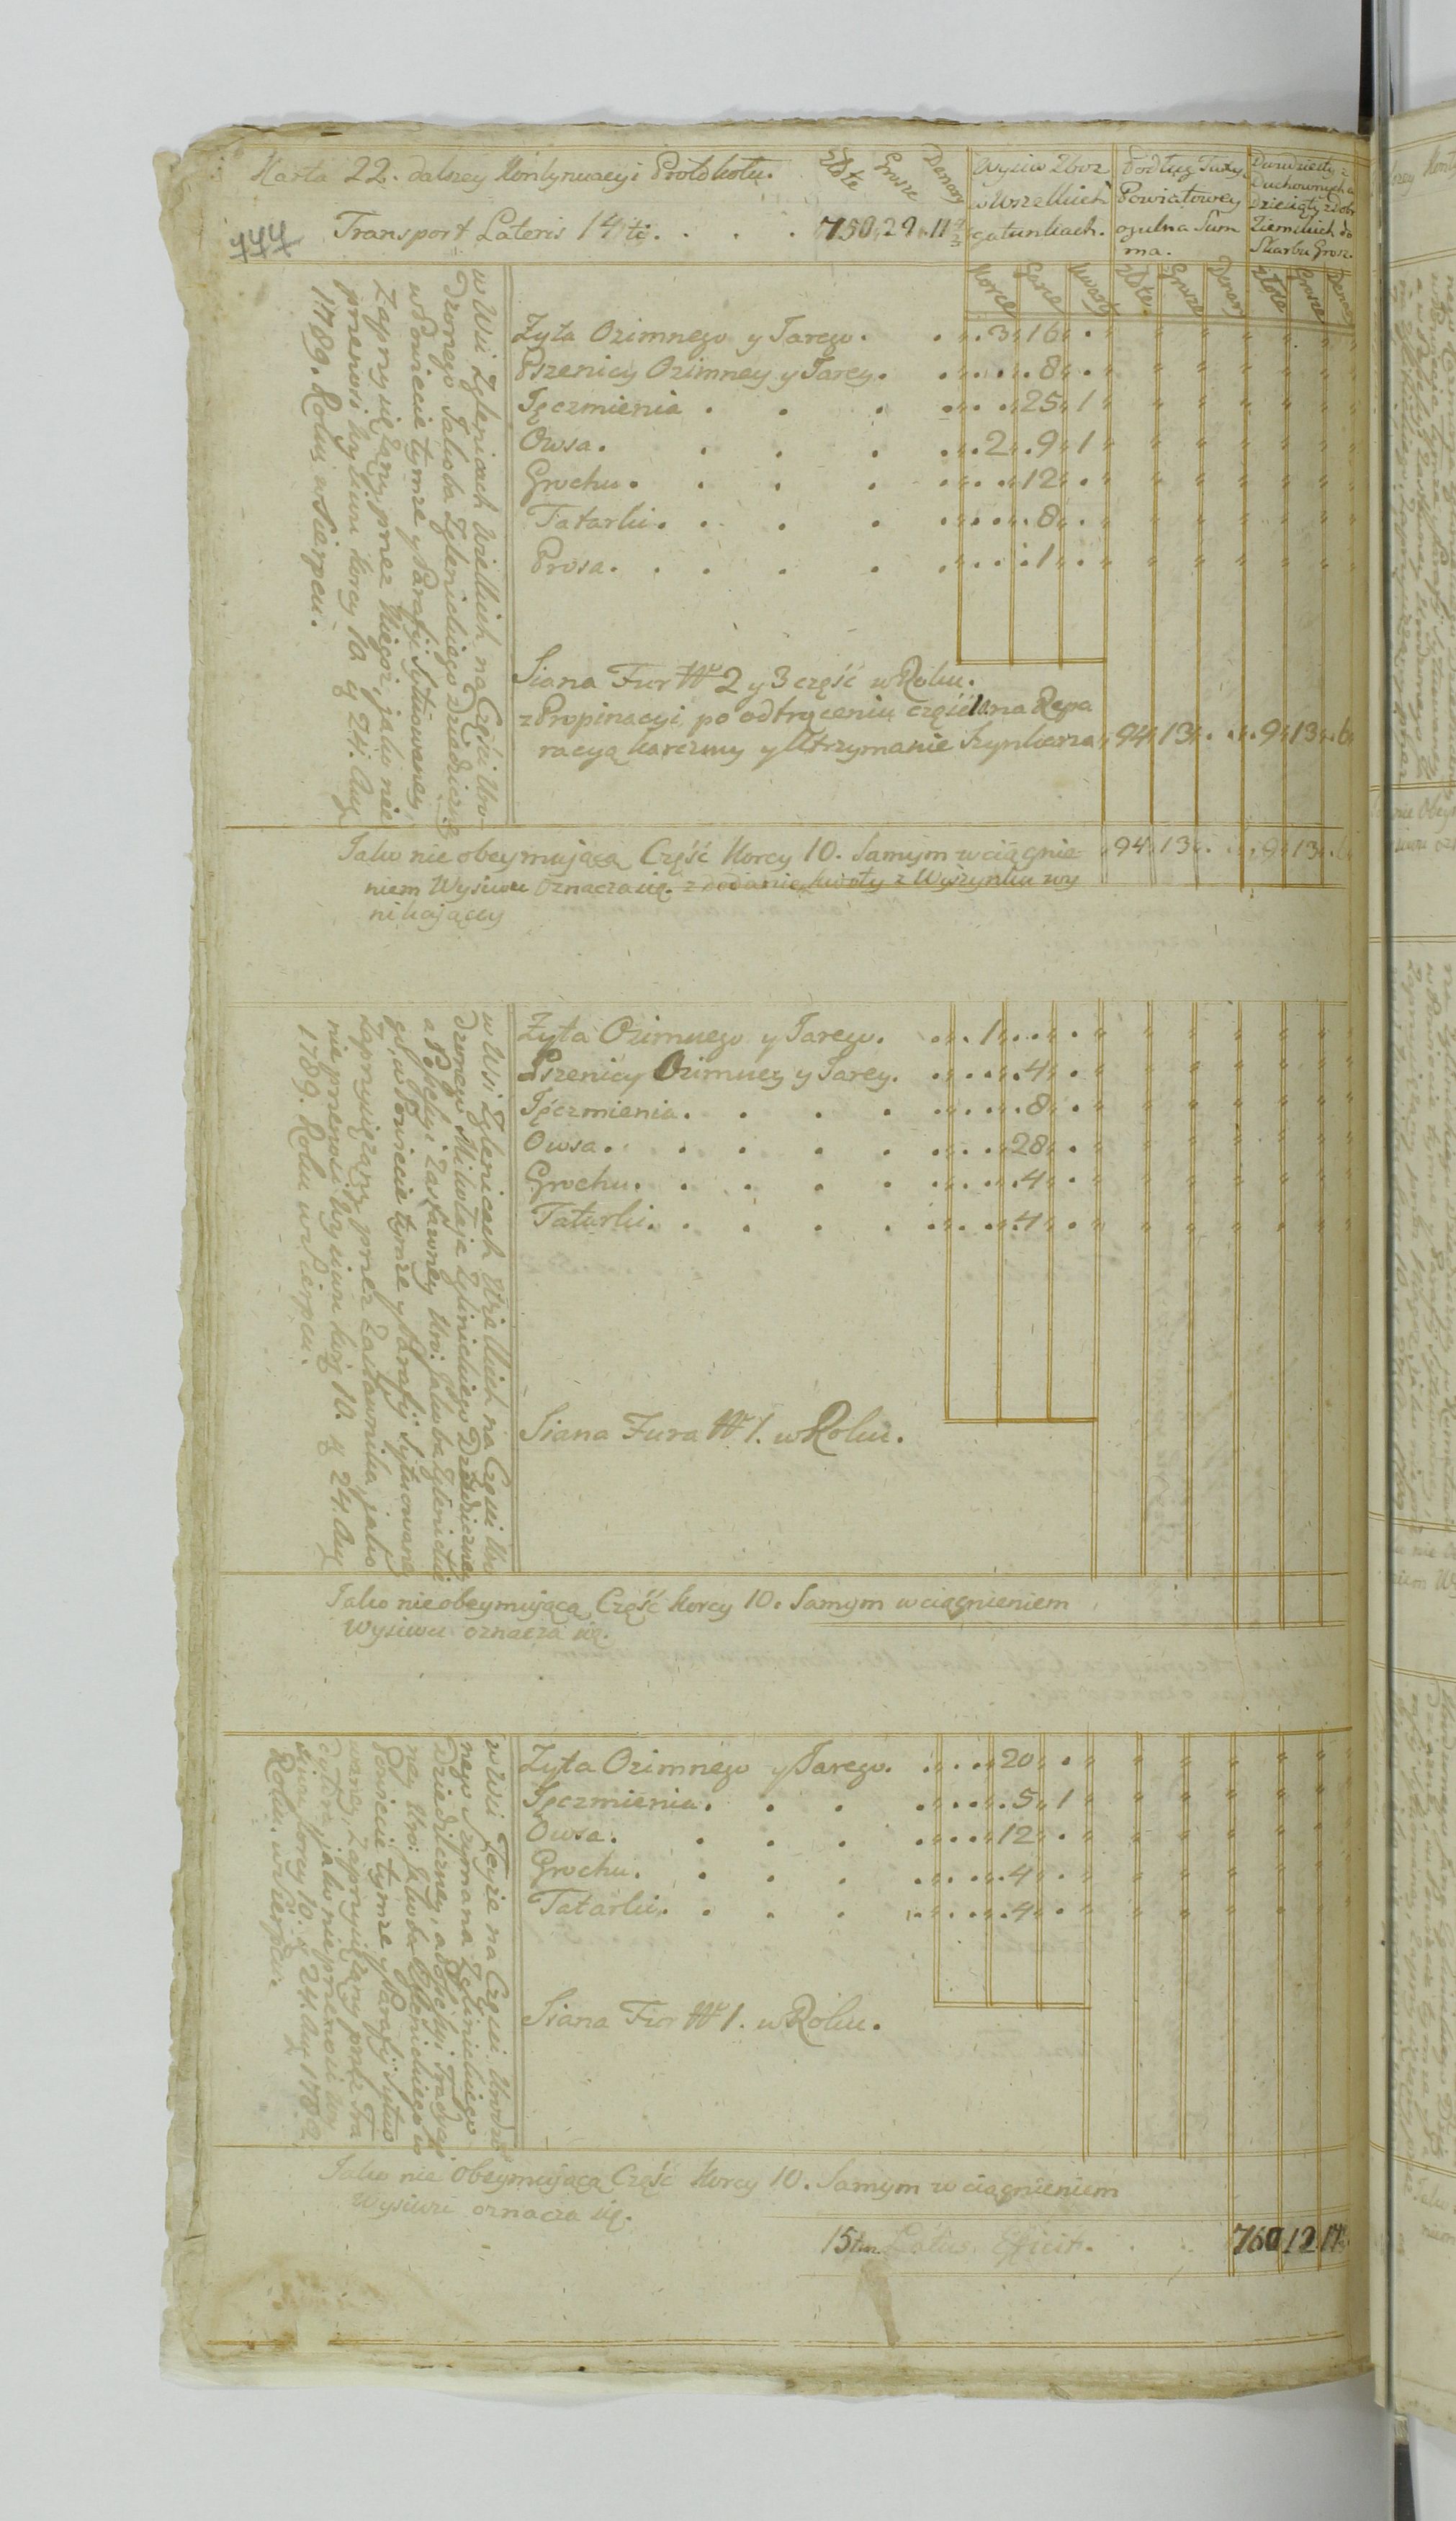 Karta 22. dalszey Kontynuacyi Protokołu.
Złote Grosze Denary
Wysiew Zboż
w Wszelkich
gatunkach.
Podług Taxy
Powiatowey
ogulna Sum
ma.
Dwudziesty z
Duchownych a
Dziesiąty z dobr
Ziemskich do
Skarbu Grosz.
444
Transport Lateris 14ti. . . . . 750,, 29. 11
Korce Garce Kwarty Złote Grosze Denary Złote Grosze Denary
w Wsi Zglenicach Wielkich na Części Uro-
dzonego Jakoba Zglenickiego Dziedziczney
w Powiecie tymże y Parafij Sytuowaney,
Zaprzysiężony przez Niegoż, jako nie
przenosi Wysiewu korcy 10 g 24. Aug
1789. Roku w Sierpcu.
Zyta Ozimnego y Jarego. . 3 16 .
Pszenicy Ozimney y Jarey. . . 8 .
Jęczmienia . . . . 25 1
Owsa. . . . 2 9 1
Grochu. . . . . 12 .
Tatarki. . . . . 8 .
Prosa. . . . . 1 .
Siana Fur № 2 y 3 część w Roku.
z Propinacyi po odtrąceniu część 10 na Repa
racyą karczmy y Utrzymanie Szynkarza 94 13 . . 9 13 6
Jako nie obeymująca Część Korcy 10. Samym wciągnie- 94 13 . . 9 13 .
niem Wysiewu Oznacza się. z dodaniem kwoty z Wyszynku wy
nikaiącey
w Wsi Zglenicach Wielkich na Części Uro
dzonego Mikołaja Zglinickiego Dziedziczney
a Possessyi zastawney Uro: Jakuba Zglenickie
go, w Powiecie tymże y Parafij Sytuowaney
Zaprzysiężony przez Zastawnika, jako
nie przenosi Wysiewu korcy 10. g 24. Aug
1789. Roku w Sierpcu.
Zyta Ozimnego y Jarego. . 1 . .
Pszenicy Ozimney y Jarey. . . 4 .
Jęczmienia. . . . . 8 .
Owsa. . . . . . 28 .
Grochu. . . . . . 4 .
Tatarki. . . . . . 4 .
Siana Fura № 1. w Roku.
Jako nieobeymująca Część korcy 10. Samym wciągnieniem
Wysiewu oznacza się.
w Wsi Teyże na Części Urodzo
nego Szymona Zglinickiego
Dziedziczney, a Possessyi Tradycyi
ney Uro: Jakoba Zglenickiego w
Powiecie tymże y Parafij Sytuo
waney, Zaprzysiężony przez Tra
dytora, jako nie przenosi Wy
siewu korcy 10. g 24. Aug 1789
Roku. w Sierpcu.
Zyta Ozimnego y Jarego. . . 20 .
Jęczmienia. . . . 5 1
Owsa. . . . . 12 .
Grochu. . . . . 4 .
Tatarki. . . . . 4 .
Siana Fur № 1. w Roku.
Jako nie Obeymująca Część Korcy 10. Samym wciągnieniem
Wysiewu oznacza się.
15tum Latus Efficit. . . 760 12 17